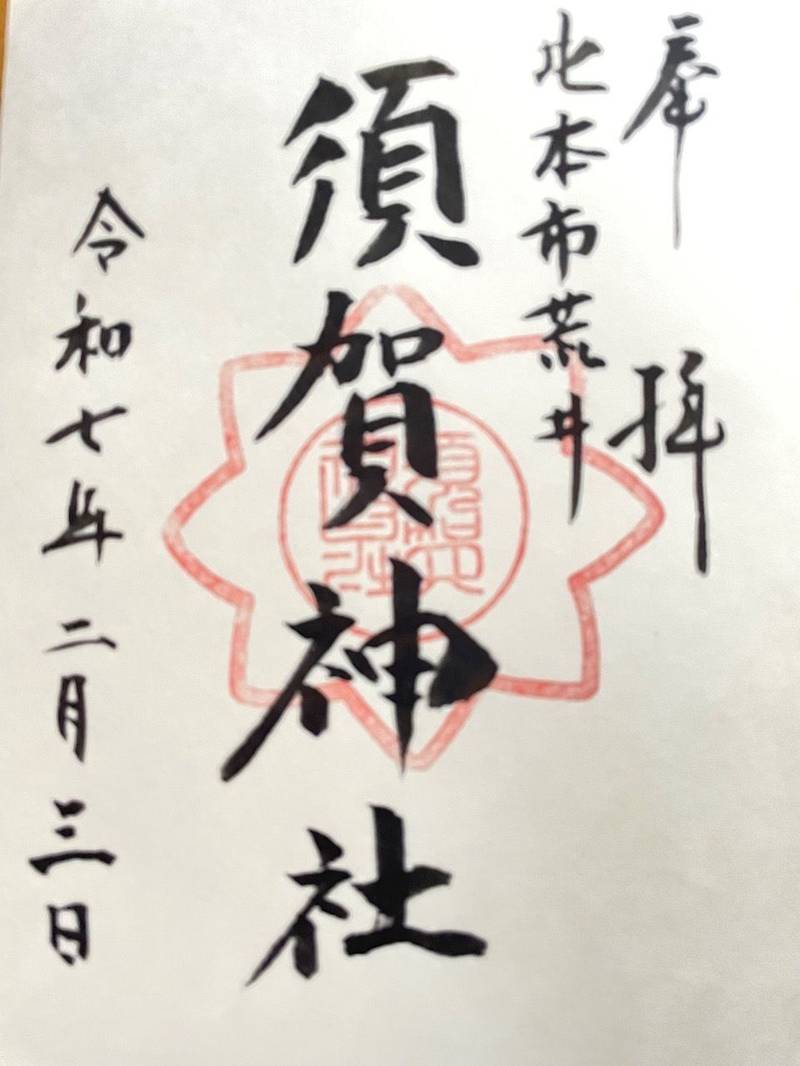 奉拝
北本市荒井
須賀神社
令和七年二月三日